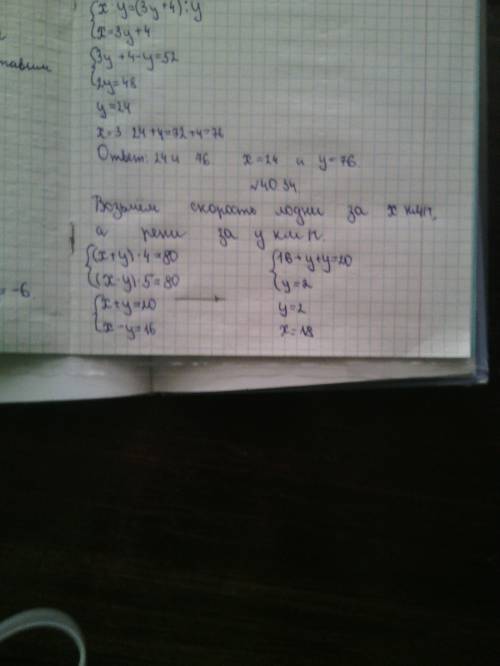 {x y=(3y+4):y
{x=3y+4
{3y+4-y=52
{2y=48
y=24
x=3 24+4=72+4=76
Ответ: 24 и 76 x=24 и y=76.
№40 34
Возьмем скорость лодки за x км/ч,
а реки за y км/ч.
{(x+y)·4=80
{(x-y)·5=80
{x+y=20
{x-y=16
{16+y+y=20
{y=2
y=2
x=18
=-6